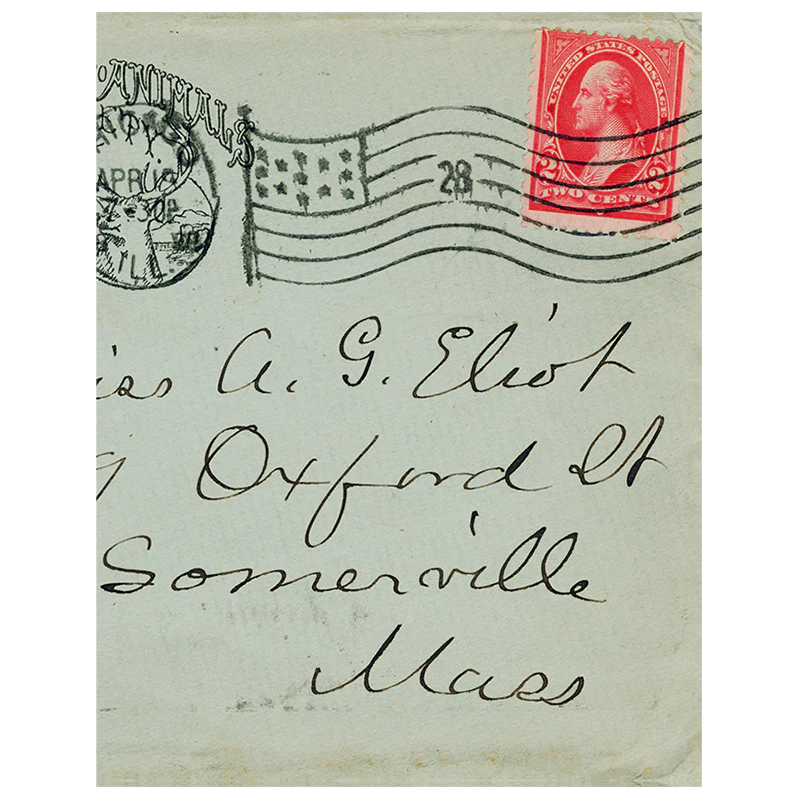 ANIMALS
APR
30P
ILL.
28
UNITED STATES POSTAGE
2 2
TWO CENT
iss A. G. Eliot
9 Oxford St
Somerville
Mass